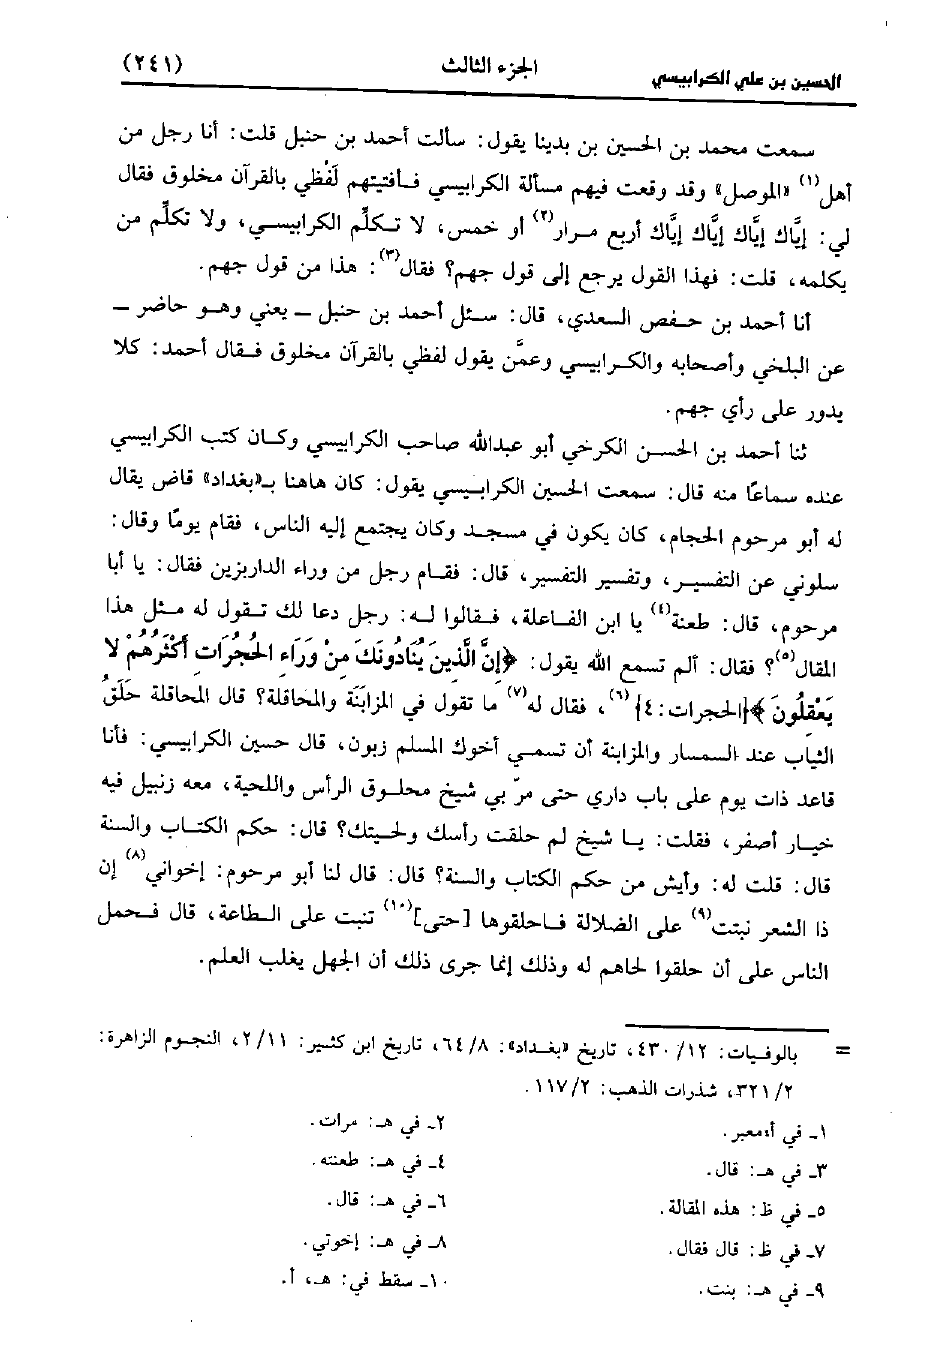 الحسين بن علي الكرابيسي الجزء الثالث (٢٤١)
سمعت محمد بن الحسين بن بدينا يقول: سألت أحمد بن حنبل قلت: أنا رجل من
أهل(١) «الموصل» وقد وقعت فيهم مسألة الكرابيسي فأفتيتهم لَفْظي بالقرآن مخلوق فقال
لي: إيَّاك إيَّاك إيَّاك إيَّاك أربع مرار(٢) او خمس، لا تكلِّم الكرابيسي، ولا تكلِّم من
يكلمه، قلت: فهذا القول يرجع إلى قول جهم؟ فقال(٣): هذا من قول جهم.
أنا أحمد بن حفص السعدي، قال: سئل أحمد بن حنبل ــ يعني وهو حاضر ــ
عن البلخي وأصحابه والكرابيسي وعمَّن يقول لفظي بالقرآن مخلوق فقال أحمد: كلا
يدور على رأي جهم.
ثنا أحمد بن الحسن الكرخي أبو عبدالله صاحب الكرابيسي وكان كتب الكرابيسي
عنده سماعًا منه قال: سمعت الحسين الكرابيسي يقول: كان هاهنا بـ«بغداد» قاض يقال
له أبو مرحوم الحجام، كان يكون في مسجد وكان يجتمع إليه الناس، فقام يومًا وقال:
سلوني عن التفسير، وتفسير التفسير، قال: فقام رجل من وراء الداربزين فقال: يا أبا
مرحوم، قال: طعنة(٤) يا ابن الفاعلة، فقالوا له: رجل دعا لك تقول له مثل هذا
المقال(٥)؟ فقال: ألم تسمع الله يقول: ﴿إِنَّ الَّذِينَ يُنَادُونَكَ مِنْ وَرَاءِ الحُجُرَاتِ أَكْثَرُهُمْ لا
يَعْقِلُونَ﴾{الحجرات: ٤}(٦)، فقال له(٧) ما تقول في المزابَنَة والمحاقلة؟ قال المحاقلة خَلَقُ
الثياب عند السمسار والمزابنة أن تسمي أخوك المسلم زبون، قال حسين الكرابيسي: فأنا
قاعد ذات يوم على باب داري حتى مرّ بي شيخ محلوق الرأس واللحية، معه زنبيل فيه
خيار أصفر، فقلت: يا شيخ لم حلقت رأسك ولحيتك؟ قال: حكم الكتاب والسنة
قال: قلت له: وأيش من حكم الكتاب والسنة؟ قال: قال لنا أبو مرحوم: إخواني(٨) إن
ذا الشعر نبتت(٩) على الضلالة فاحلقوها [حتى](١٠) تنبت على الطاعة، قال فحمل
الناس على أن حلقوا لحاهم له وذلك إنما جرى ذلك أن الجهل يغلب العلم.
= بالوفيات: ٤٣٠/١٢، تاريخ «بغداد»: ٦٤/٨، تاريخ ابن كثير: ٢/١١، النجوم الزاهرة:
٣٢١/٢، شذرات الذهب: ١١٧/٢.
١ــ في أ، معبر. ٢ــ في هـ: مرات.
٣ــ في هـ: قال. ٤ــ في هـ: طعنته.
٥ــ في ظ: هذه المقالة. ٦ــ في هـ: قال.
٧ــ في ظ: قال فقال. ٨ــ في هـ: إخوتي.
٩ــ في هـ: بنت. ١٠ــ سقط في: هـ، أ.